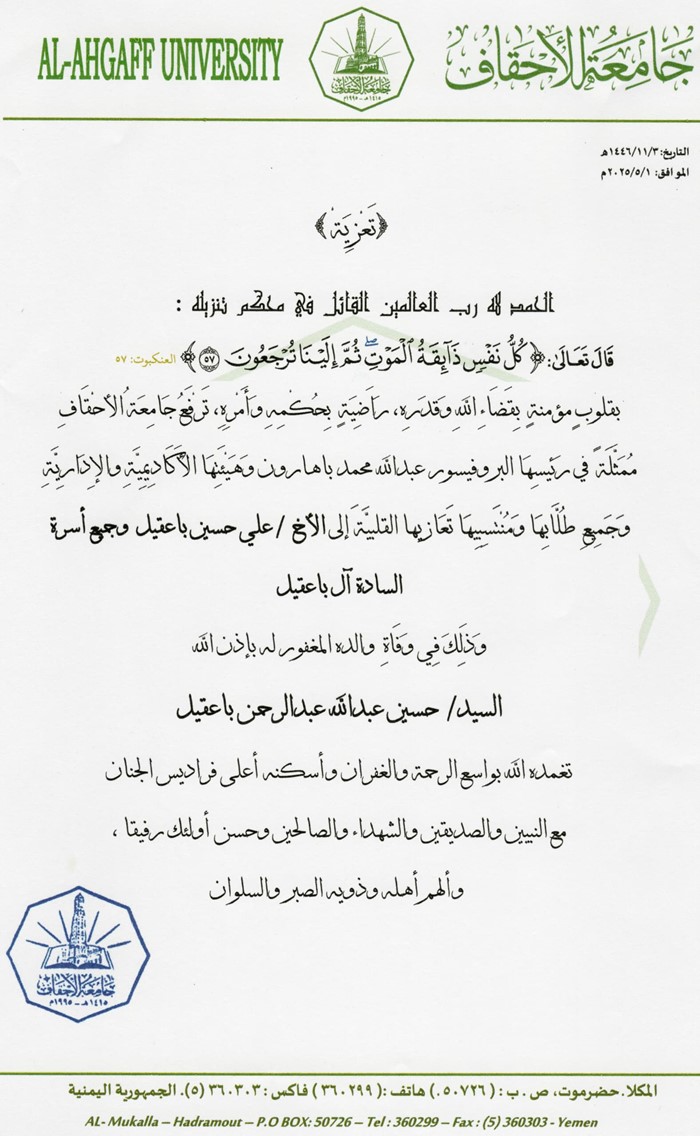 AL-AHGAFF UNIVERSITY
جامعة الأحقاف
جَامِعَةُ الأَحْقَاف
١٤١٥هـ – ١٩٩٥م
التاريخ: ١٤٤٦/١١/٣هـ
الموافق: ٢٠٢٥/٥/١م
﴿تَعْزِيَة﴾
الحمد لله رب العالمين القائل في محكم تنزيله :
قَالَ تَعَالَىٰ: ﴿ كُلُّ نَفْسٍ ذَآئِقَةُ ٱلْمَوْتِۖ ثُمَّ إِلَيْنَا تُرْجَعُونَ ٥٧ ﴾ العنكبوت: ٥٧
بقلوبٍ مؤمنةٍ بِقضَاءِ اللهِ وقدَرِهِ، رَاضِيَةٍ بِحُكْمِهِ وَأَمْرِهِ، تَرفَعُ جَامِعَةُ الأَحْقَافِ
مُمَثَّلَةً في رَئيسِهَا البروفيسور عبدالله محمد باهارون وَهَيْئَتِهَا الأَكَادِيمِيَّةِ وَالإِدَارِيَّةِ
وَجَمِيعِ طُلَّابِهَا وَمُنْتَسِبِيهَا تَعَازِيهَا القلبيَّةَ إلى الأخ / علي حسين باعقيل وجميع أسرة
السادة آل باعقيل
وَذَلِكَ فِي وَفَاةِ والده المغفور له بإذن الله
السيد/ حسين عبدالله عبدالرحمن باعقيل
تغمده الله بواسع الرحمة والغفران وأسكنه أعلى فراديس الجنان
مع النبيين والصديقين والشهداء والصالحين وحسن أولئك رفيقا ،
وألهم أهله وذويه الصبر والسلوان
جَامِعَةُ الأَحْقَاف
١٤١٥هـ – ١٩٩٥م
المكلا. حضرموت، ص . ب : ( ٥٠٧٢٦ .) هاتف :( ٣٦٠٢٩٩ ) فاكس : ٣٦٠٣٠٣ (٥). الجمهورية اليمنية
AL- Mukalla – Hadramout – P.O BOX: 50726 – Tel : 360299 – Fax : (5) 360303 - Yemen